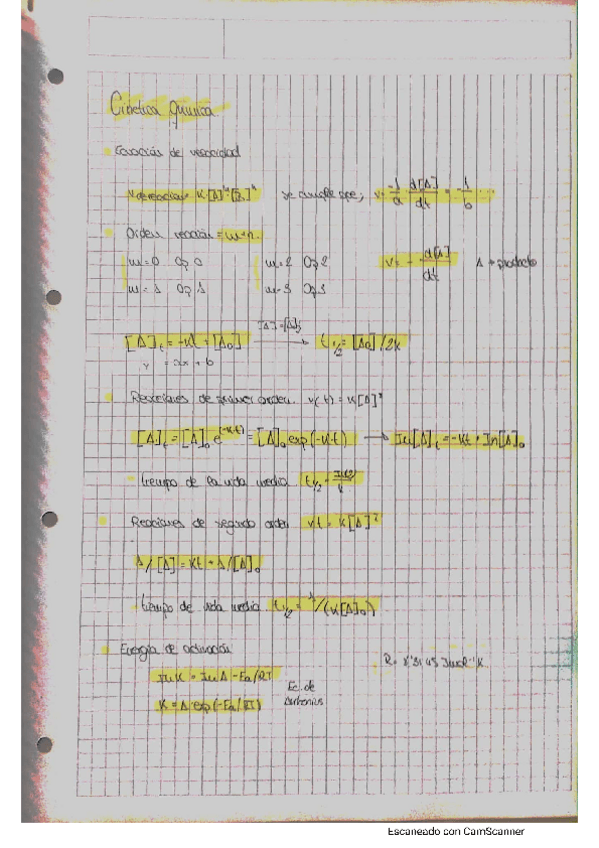 Cinética Química
Ecuación de velocidad
V de reacción = K[A]ᵐ·[B]ⁿ se cumple que; v = -1/a d[A]/dt = -1/b ...
Orden reacción = m+n.
m=0 Op 0 m=2 Op 2 v = - d[A]/dt A → producto
m=1 Op 1 m=3 Op 3
[A]t = -Kt + [A0] → t1/2 = [A0]/2K
y = ax + b
Reacciones de primer orden. v(t) = K[A]¹
[A]t = [A]₀ e^(-Kt) = [A]₀ exp(-Kt) → ln[A]t = -Kt + ln[A]₀
tiempo de la vida media t1/2 = ln2/K
Reacciones de segundo orden vt = K[A]²
1/[A] = Kt + 1/[A]₀
tiempo de vida media t1/2 = 1/(K[A]₀)
Energía de activación
ln K = ln A - Ea/RT
K = A exp(-Ea/RT)
Ec. de
Arrhenius
R = 8'3145 Jmol⁻¹K
Escaneado con CamScanner